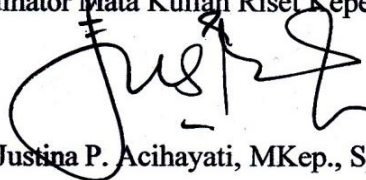 inator Mata Kuliah Riset Kepe
Justina P. Acihayati, MKep., S